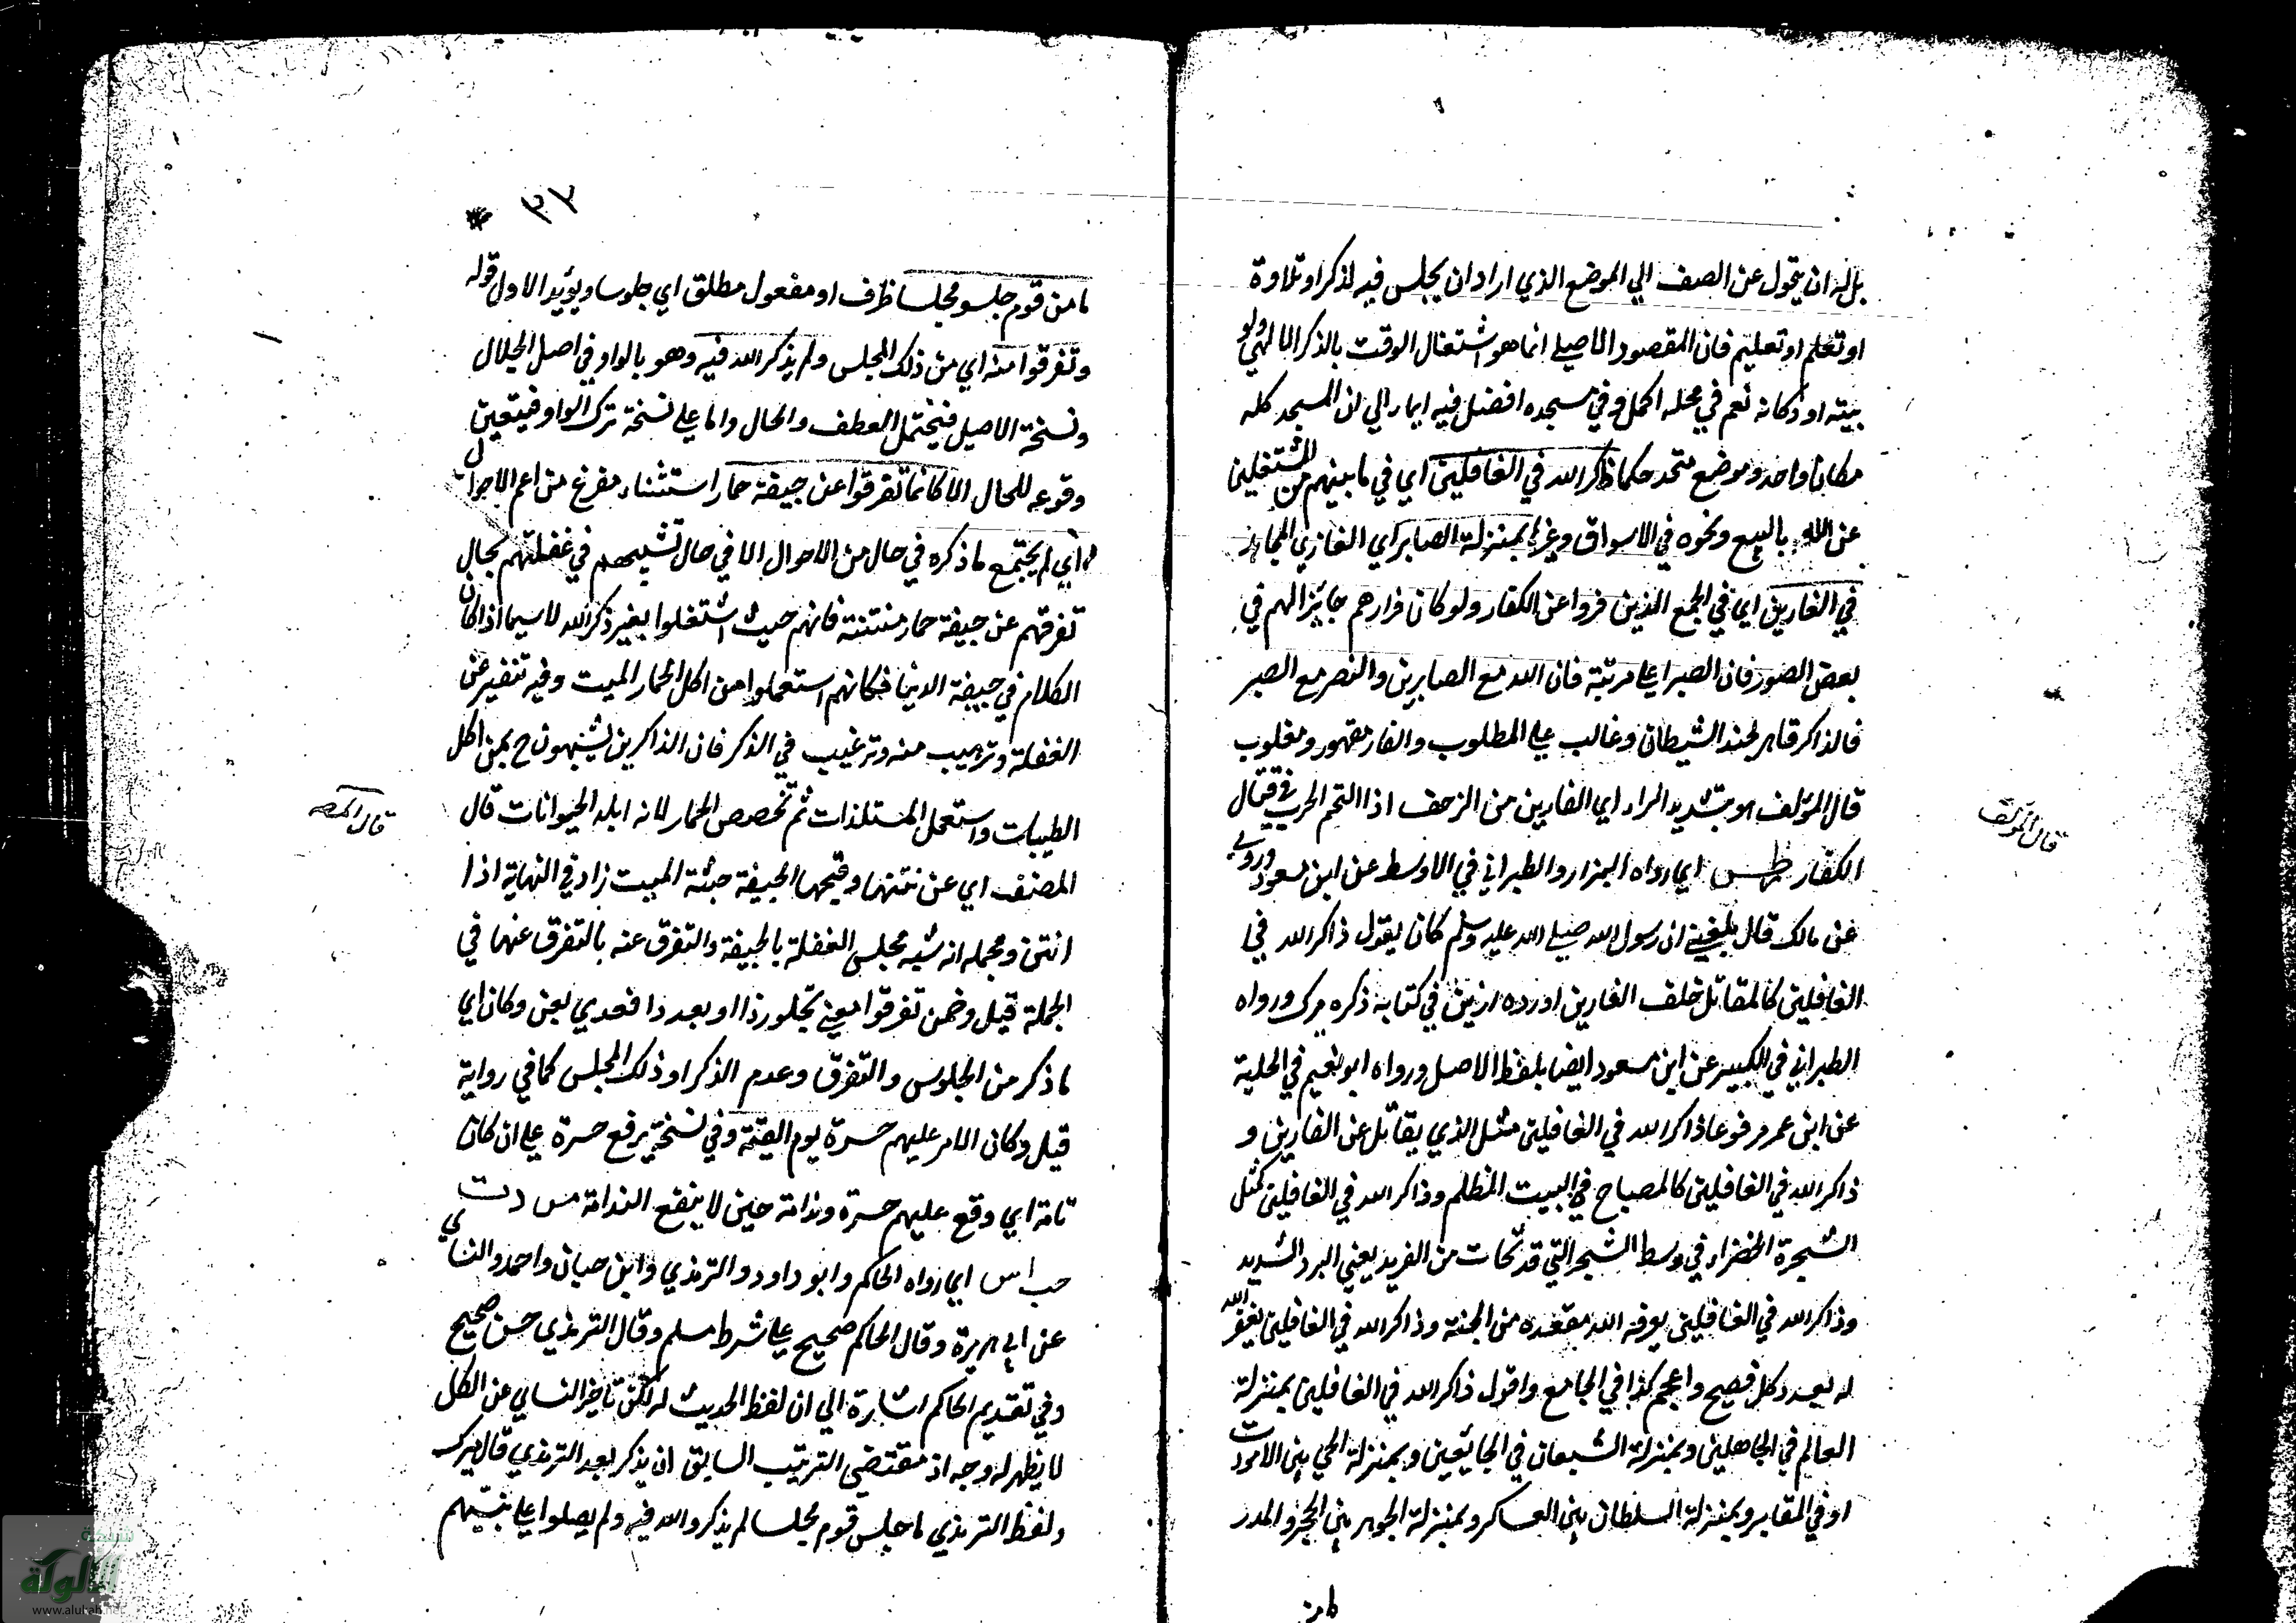 بل له ان يتحول عن الصف الي الموضع الذي اراد ان يجلس فيه لذكر او تلاوة
او تعلم او تعليم فان المقصود الاصلي انما هو اشتغال الوقت بالذكر الالهي ولو
بيته او دكانه نعم في محله اكمل وفي مسجده افضل فيه ايماء الي ان المسجد كله
مكان واحد وموضع متحد حكما ذاكر الله في الغافلين اي في ما بينهم من المشتغلين
عن الله بالبيع ونحوه في الاسواق وغيرها بمنزلة الصابر اي الغازي المجاهد
في الفارين اي في الجمع الذين فروا عن الكفار ولو كان فرارهم جائزا لهم في
بعض الصور فان الصبر اعلي مرتبة فان الله مع الصابرين والنصر مع الصبر
فالذاكر قاهر لجند الشيطان وغالب علي المطلوب والفار مقهور ومغلوب
قال المؤلف هو بتشديد الراء اي الفارين من الزحف اذا التحم الحرب في قتال
قال المؤلف
الكفار طس اي رواه البزار والطبراني في الاوسط عن ابن مسعود وروي
عن مالك قال بلغني ان رسول الله صلي الله عليه وسلم كان يقول ذاكر الله في
الغافلين كالمقاتل خلف الفارين اورده رزين في كتابه ذكره ميرك ورواه
الطبراني في الكبير عن ابن مسعود ايضا بلفظ الاصل ورواه ابو نعيم في الحلية
عن ابن عمر مرفوعا ذاكر الله في الغافلين مثل الذي يقاتل عن الفارين و
ذاكر الله في الغافلين كالمصباح في البيت المظلم وذاكر الله في الغافلين كمثل
الشجرة الخضراء في وسط الشجر التي قد تحات من الضريد يعني البرد الشديد
وذاكر الله في الغافلين يعرفه الله مقعده من الجنة وذاكر الله في الغافلين يغفر الله
له بعدد كل فصيح واعجم كذا في الجامع واقول ذاكر الله في الغافلين بمنزلة
العالم في الجاهلين وبمنزلة الشبعان في الجايعين وبمنزلة الحي بين الاموات
او في المقابر وبمنزلة السلطان بين العساكر وبمنزلة الجوهر بين الحجر والمدر
ما من
٣٢
ما من قوم جلسو مجلسا ظرف او مفعول مطلق اي جلوسا ويؤيد الاول قوله
وتفرقوا منه اي من ذلك المجلس ولم يذكر الله فيه وهو بالواو في اصل الجلال
ونسخة الاصيل فيحتمل العطف والحال واما علي نسخة ترك الواو فيتعين
وقوعه للحال الا كانما تفرقوا عن جيفة حمار استثناء مفرغ من اعم الاحوال
اي لم يجتمع ما ذكره في حال من الاحوال الا في حال تشبيههم في غفلتهم بحال
تفرقهم عن جيفة حمار منتنة فانهم حيث اشتغلوا بغير ذكر الله لا سيما اذا كان
الكلام في جيفة الدنيا فكانهم استعملوا من اكل الحمار الميت وفيه تنفير عن
الغفلة وترهيب منه وترغيب في الذكر فان الذاكرين يشبهون ح بمن اكل
الطيبات واستعمل المستلذات ثم تخصص الحمار لانه ابلد الحيوانات قال
قال المصـ
المصنف اي عن نتنها وقبحها الجيفة جثة الميت زاد في النهاية اذا
انتن ومجمله انه شبه مجلس الغفلة بالجيفة والتفرق عنه بالتفرق عنها في
الجملة قيل وضمن تفرقوا معني تجاوزوا او بعدوا فعدي بعن وكان اي
ما ذكر من الجلوس والتفرق وعدم الذكر او ذلك المجلس كما في رواية
قيل وكان الامر عليهم حسرة يوم القيمة وفي نسخة برفع حسرة علي ان كان
تامة اي وقع عليهم حسرة وندامة حين لا ينفع الندامة مس د ت
حب ا س اي رواه الحاكم وابو داود والترمذي وابن حبان واحمد والنسائي
عن ابي هريرة وقال الحاكم صحيح علي شرط مسلم وقال الترمذي حسن صحيح
وفي تقديم الحاكم اشارة الي ان لفظ الحديث له لكن تاخير النسائي عن الكل
لا يظهر له وجه اذ مقتضي الترتيب السابق ان يذكر بعد الترمذي قال ميرك
ولفظ الترمذي ما جلس قوم مجلسا لم يذكروا الله فيه ولم يصلوا علي نبيهم
شبكة
الألوكة
www.alukah.net